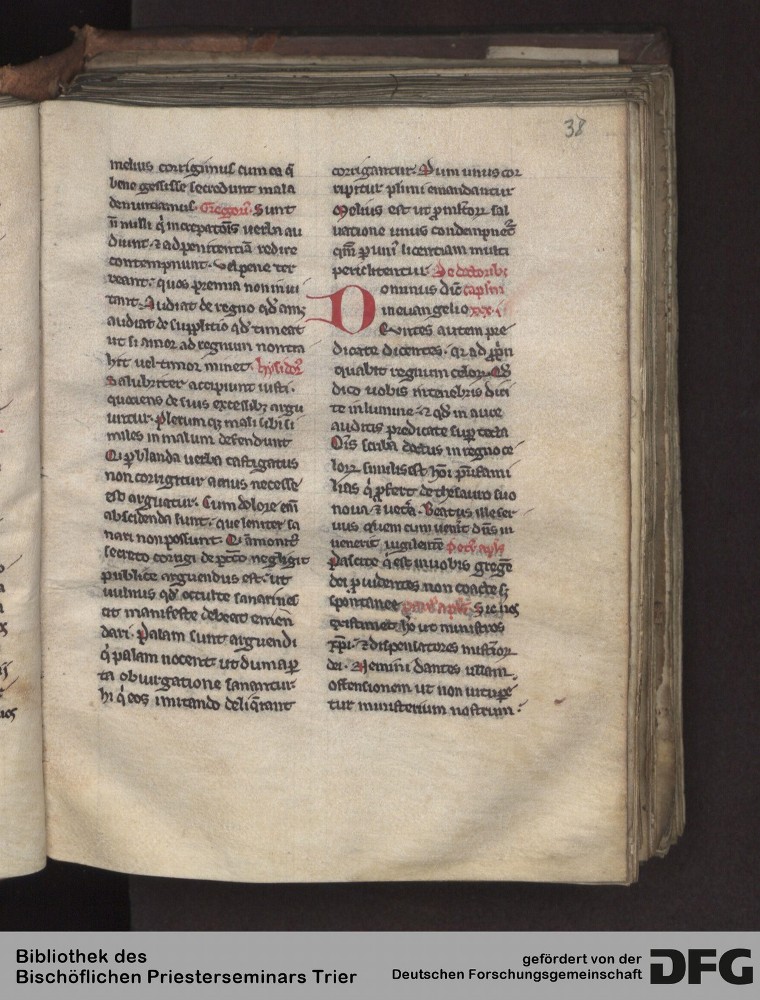 38
melius corrigimus cum ea q̄
bene gessisse se credunt mala
denuntiamus. Gregori᷒. Sunt
n̄ nulli q̇ increpatōis verba au
diunt. ⁊ ad penitentiā redire
contempnunt. vel pene ter
reant. quos premia non inui
tant. Audiat de regno qd̄ am;
audiat de supplitio qd̄ timeat
ut si amor ad regnum non tra
hit vel timor minet. hysidor᷒
Salubriter accipiunt iusti.
quociens de suis excessibȝ argu
untur. Plerum qȝ mali sibi si
miles in malum defendunt
Qi p̱ blanda verba castigatus
non corrigitur acrius necesse
est arguatur. Cum dolore em̄
abscidenda sunt. que leniter sa
nari non possunt. Qi āmonit᷒
secreto corrigi de pccō negligit
publice arguendus est. ut
vulnus qd̄ occulte sanari nesc
cit manifeste debeat emen
dari. Palam sunt arguendi
q̇ palam nocent ut dum ap̱
ta obiurgatione sanantur
hi q̇ eos imitando deliq̄rant
corrigantur. Dum unus cor
ripitur plimi emandantur
Melius est ut p̱ mltoꝝ sal
uatione unus condempnet᷑
qm̄ p̱ uni᷒ licentiam multi
periclitentur De doctoribȝ
Dominus dic̄ capl̄m
in euangelio xxx.i
Euntes autem pre
dicate dicentes. qr appropin
quabit regnum celoꝝ. Qd̄
dico uobis in tenebris dici
te in lumine. ⁊ qd̄ in aure
auditis predicate sup̱ tecta
Ois̄ scriba doctus in regno ce
loꝝ similis est hōi pr̄i fami
lias q̇ ꝓfert de thesauro suo
noua ⁊ uetˢa. Beatus ille ser
uus quem cum uenit dn̄s in
uenerit uigilantē Petr᷒ apl̄s
Pascite q̇ est in uobis gregē
dei ꝓuidentes non coacte sȝ
spontanee paul᷒ apl̄s Sic nos
existimet hō ut ministros
xp̄i. ⁊ dispensatores misterioꝝ
dei. Nemini dantes ullam
offensionem ut non uitupe
tur ministerium nostrum.
Bibliothek des
Bischöflichen Priesterseminars Trier
gefördert von der
Deutschen Forschungsgemeinschaft
DFG